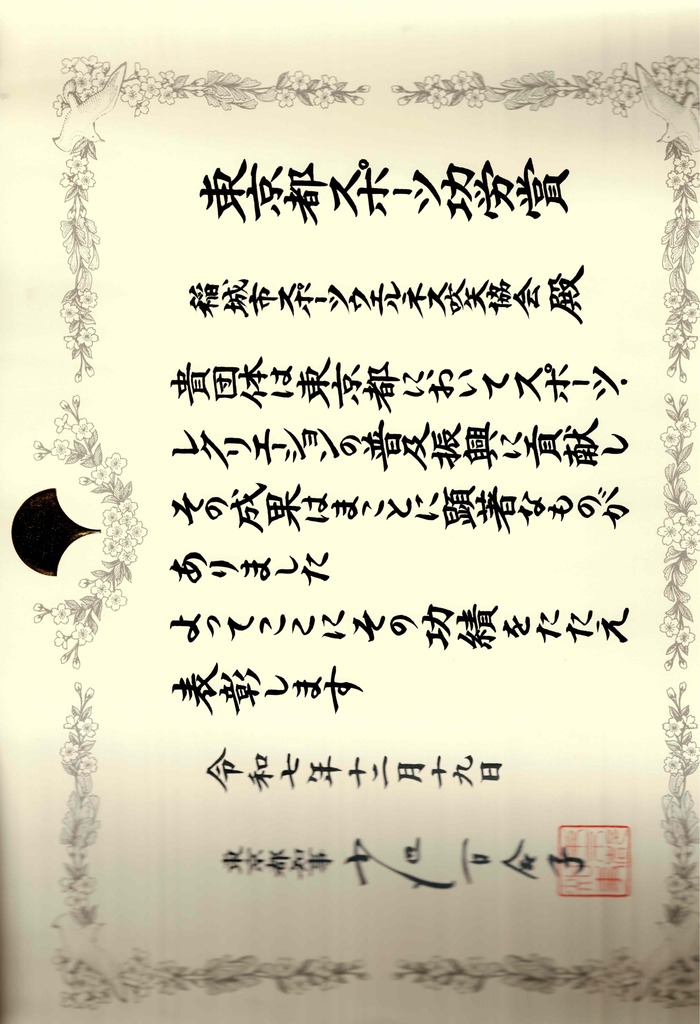 東京都スポーツ功労賞
稲城市スポーツウエルネス吹矢協会殿
貴団体は東京都においてスポーツ・
レクリエーションの普及振興に貢献し
その成果はまことに顕著なものが
ありました
よってここにその功績をたたえ
表彰します
令和七年十二月十九日
東京都知事 小池百合子